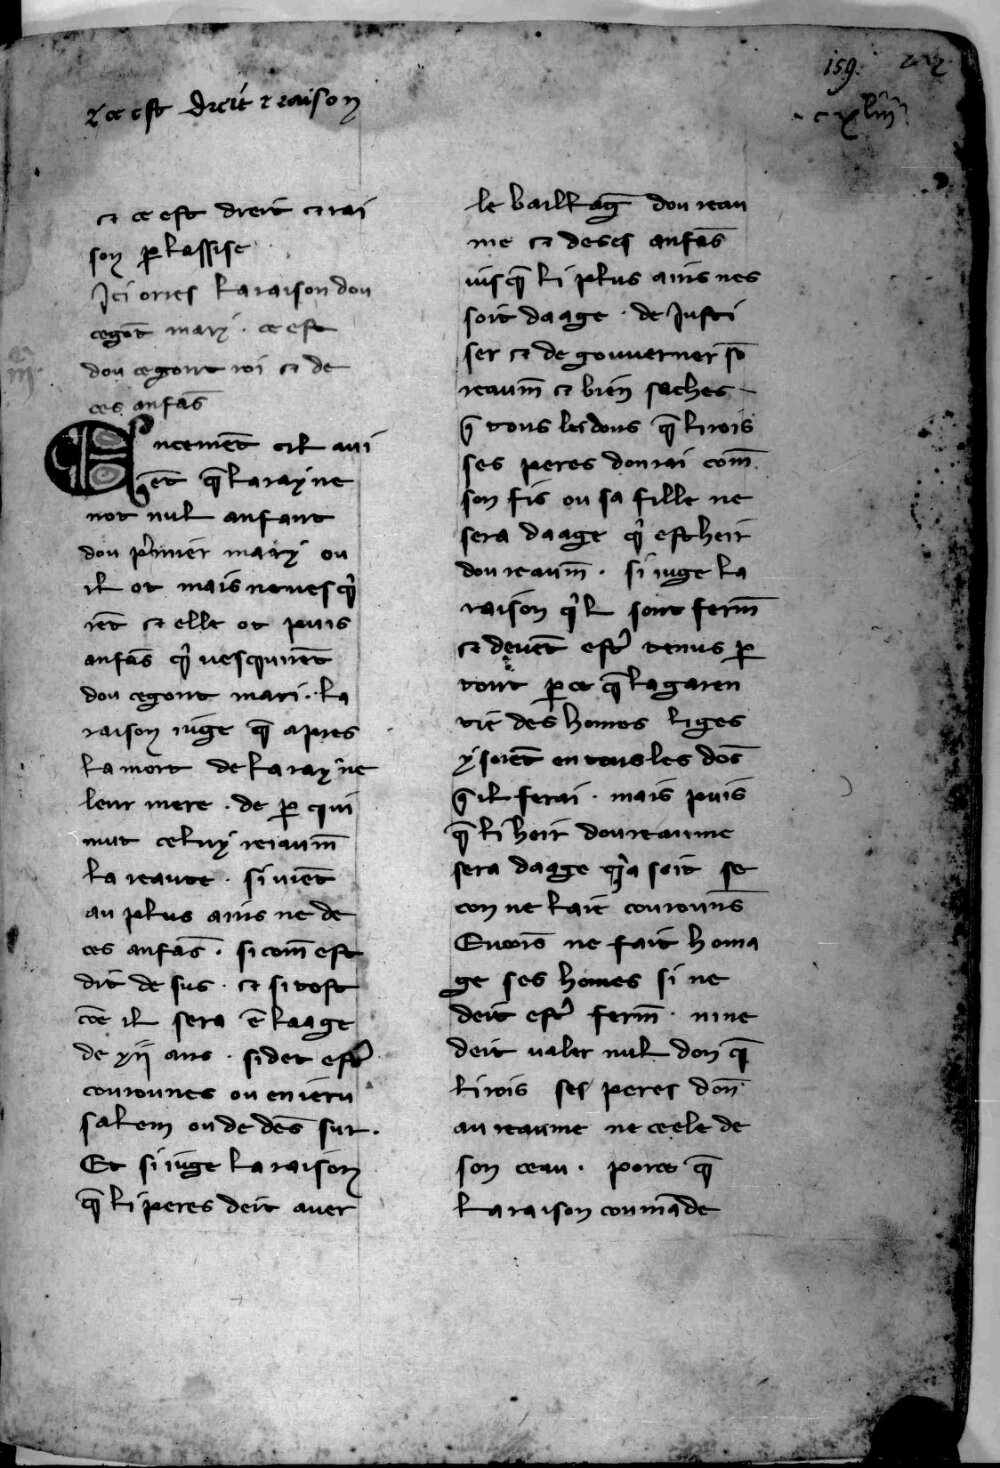 ⁊ ce est dreit ⁊ raison
159.
c xliiii
⁊ ce est dreit ⁊ rai
son ꝑ lassise
Ici orres la raison dou
cegōt mary . ce est
dou cegont roi ⁊ de
ces anfās
Encemēt cil aui
ēt q̄ la rayne
not nul anfant
dou p̍mier mary ou
il ot mais ne uesq̍
rēt ⁊ elle ot puis
anfās q̍ uesquirēt
dou cegont mari . la
raison iuge q̄ apres
la mort de la rayne
leur mere . de ꝑ qui
mut celuy reiaum̄
la reaute . si uiēt
au plus ains ne de
ces anfās . si com̄ est
dit de sus . ⁊ si tost
cōe il sera ē laage
de xii ans . si det est̍
courounes ou en ieru
salem ou de dēs sur .
Et si iuge la raison
q̄ li peres deit auer
le baillaḡ dou reau
me ⁊ de ses anfās
iusq̄ li plus ains nes
soit daage . de iusti
ser ⁊ de gouuerner sō
reaum̄ ⁊ biēn saches
q̄ tous les dons q̄ li rois
ses peres donrai com̄
son fis ou sa fille ne
sera daage q̍ est heir
dou reaum̄ . si iuge la
raison q̍l sont ferm̄
⁊ deuēt est̍ tenus ꝑ
tout ꝑ ce q̄ la garen
tie des homes liges
y soiēt en tous les dōs
q̄ il ferai . mais puis
q̄ li heir dou reaume
sera daage soit se
con ne lait courounēs
Encores ne fait homa
ge ses homes si ne
deit est̍ ferm̄ . nine
deit ualer nul don q̄
li rois ses peres don̄
au reaume ne cele de
son ceau . porce q̄
la raison coumāde